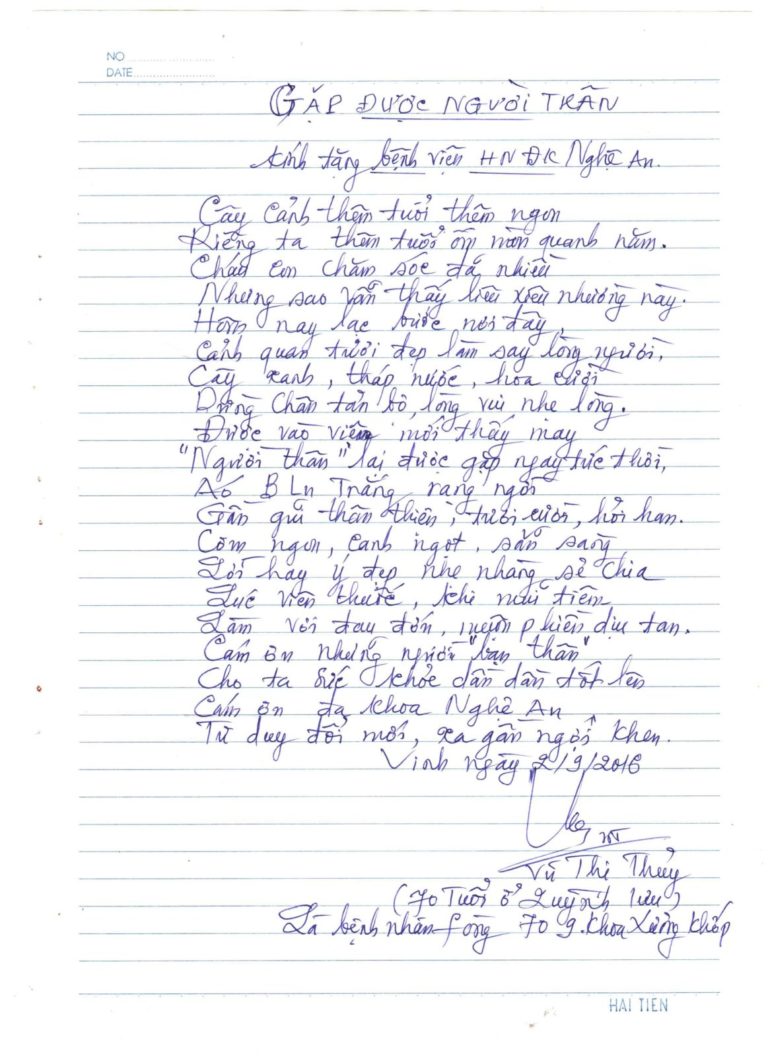 NO
DATE
GẶP ĐƯỢC NGƯỜI THÂN
Kính tặng bệnh viện HNĐK Nghệ An.
Cây cảnh thêm tuổi thêm ngon
Riêng ta thêm tuổi ốm mòn quanh năm.
Cháu con chăm sóc đã nhiều
Nhưng sao vẫn thấy liêu xiêu nhường này.
Hôm nay lạc bước nơi đây,
Cảnh quan tươi đẹp làm say lòng người,
Cây xanh, tháp nước, hoa cười
Dừng chân tản bộ, lòng vui nhẹ lòng.
Được vào viện mới thấy may
"Người thân" lại được gặp ngay tức thời,
Áo BLu Trắng rạng ngời
Gần gũi thân thiện, tươi cười, hỏi han.
Cơm ngon, canh ngọt, sẵn sàng
Lời hay ý đẹp nhẹ nhàng sẻ chia
Lúc viên thuốc, khi mũi tiêm
Làm vơi đau đớn, muộn phiền dịu tan.
Cám ơn những người "bạn thân"
Cho ta sức khỏe dần dần tốt lên
Cám ơn đa khoa Nghệ An
Tư duy đổi mới, xa gần ngợi khen.
Vinh ngày 2/9/2016
Vũ Thị Thủy
(70 Tuổi ở Quỳnh Lưu)
Là bệnh nhân fòng 709. Khoa Xương Khớp
HAI TIEN